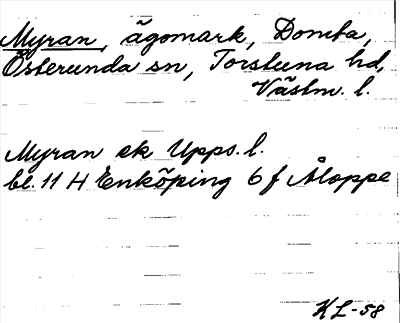 Myran, ägomark, Domta,
Österunda sn, Torstuna hd,
Västm. l.
Myran ek Upps. l.
bl. 11 H Enköping 6 f Åloppe
KL-58